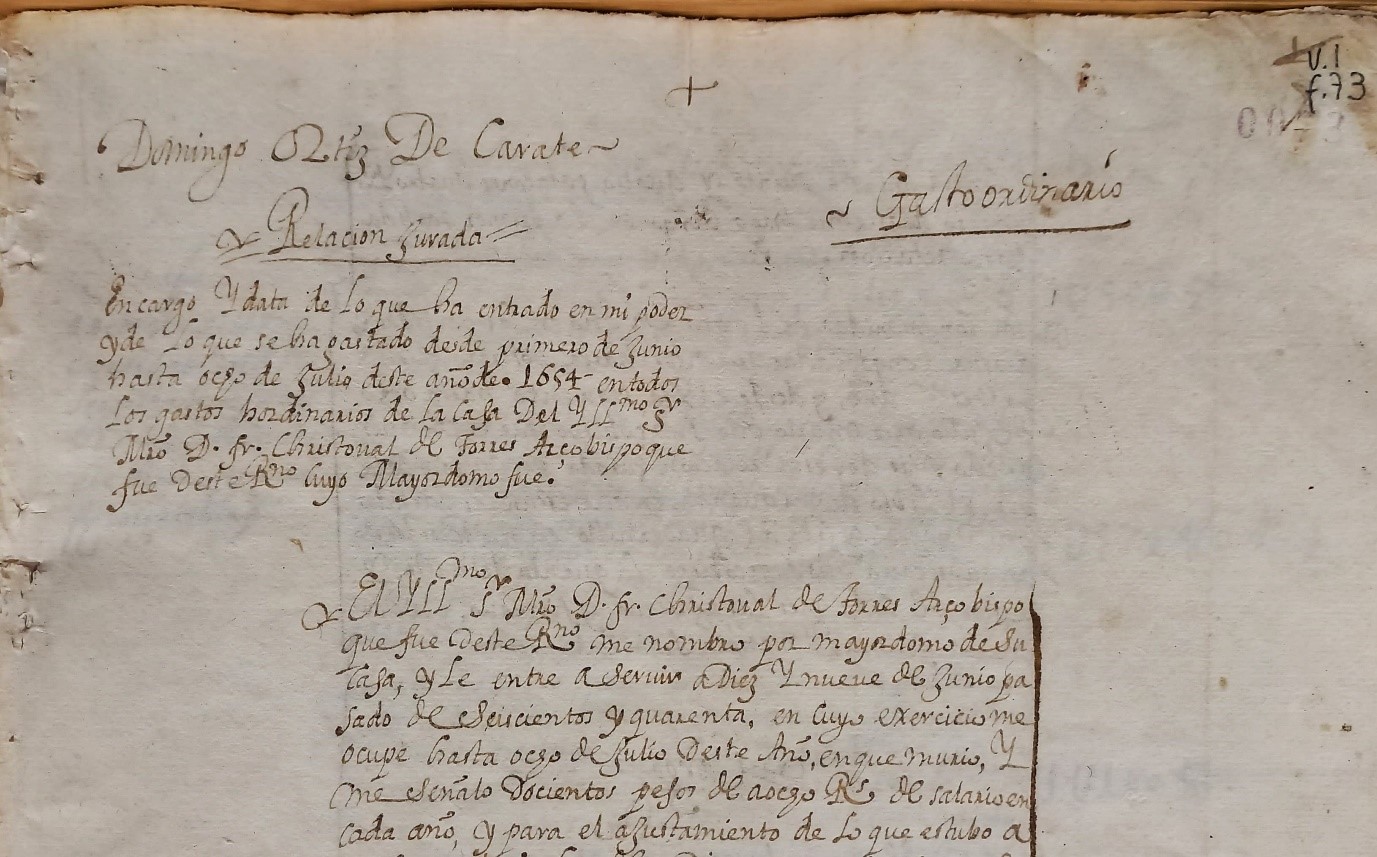 +
V.1
f.73
Domingo ORtiz De Carate
Gasto ordinario
Relacion Jurada
En cargo Y data de Lo que ha entrado en mi poder
y de Lo que se ha gastado desde primero de Junio
hasta ocho de Julio deste año de 1654 en todos
Los gastos hordinarios de La Casa Del YLLmo Sr
Mro D. fr. Christoual de Torres Arçobispo que
fue Deste Rno Cuyo Mayordomo fue.
El YLLmo Sr Mro D. fr. Christoual de Torres Arçobispo
que fue Deste Rno me nombro por mayordomo de Su
Casa, y Le entre a Seruir a Diez Y nueve de Junio pa
sado de Seiscientos y quarenta, en Cuyo exercicio me
ocupe hasta ocho de Julio Deste Año, en que murio, Y
me Señalo Docientos pesos de a ocho Rs de salario en
Cada año, y para el ajustamiento de Lo que estubo a